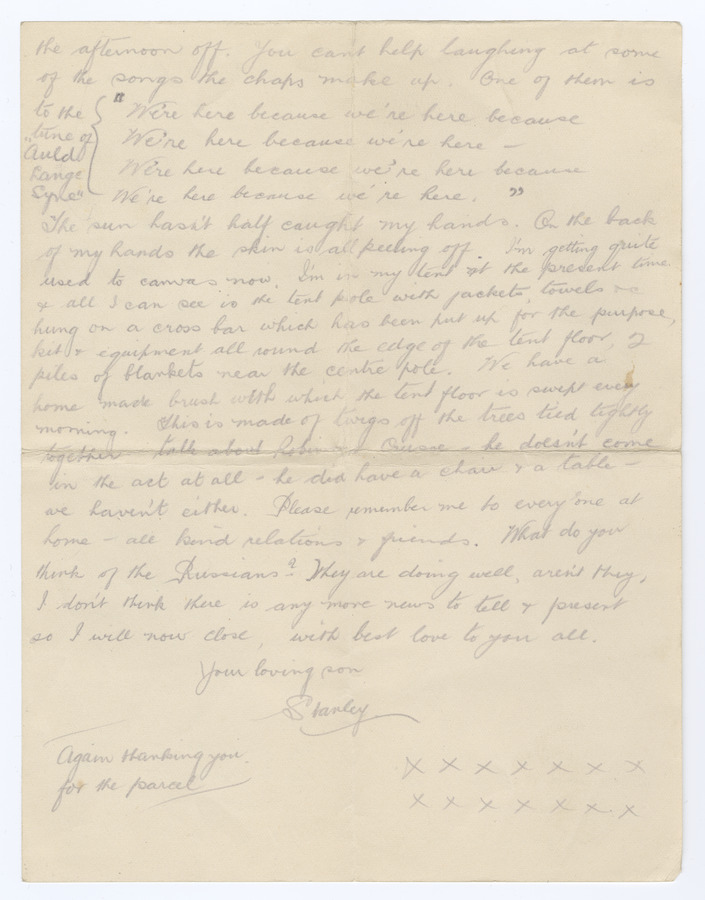 the afternoon off. You cant help laughing at some
of the songs the chaps make up. One of them is
to the
tune of
"Auld
Lange
Syne"
"We're here because we're here because
We're here because we're here —
We're here because we're here because
We're here because we're here."
The sun hasn't half caught my hands. On the back
of my hands the skin is all peeling off. I'm getting quite
used to canvas now. I'm in my tent at the present time
& all I can see is the tent pole with jackets, towels
hung on a cross bar which has been put up for the purpose,
kit & equipment all round the edge of the tent floor, 2
piles of blankets near the centre pole. We have a
home made brush with which the tent floor is swept every
morning. This is made of twigs off the trees tied tightly
together — talk about Robinson Crusoe — he doesn't come
in the act at all — he did have a chair & a table —
we haven't either. Please remember me to every one at
home — all kind relations & friends. What do you
think of the Russians? They are doing well, aren't they,
I don't think there is any more news to tell & present
so I will now close, with best love to you all.
Your loving son
Stanley
Again thanking you
for the parcel
x x x x x x x
x x x x x x x